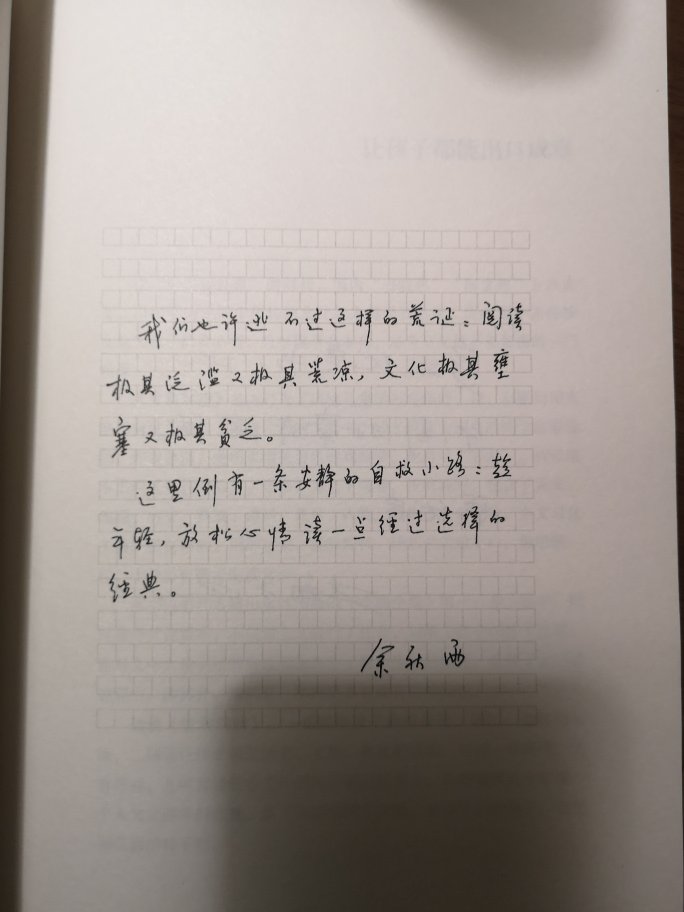 我们也许逃不过这样的荒诞：阅读
极其泛滥又极其荒凉，文化极其壅
塞又极其贫乏。
这里倒有一条安静的自救小路：趁
年轻，放松心情读一点经过选择的
经典。
余秋雨